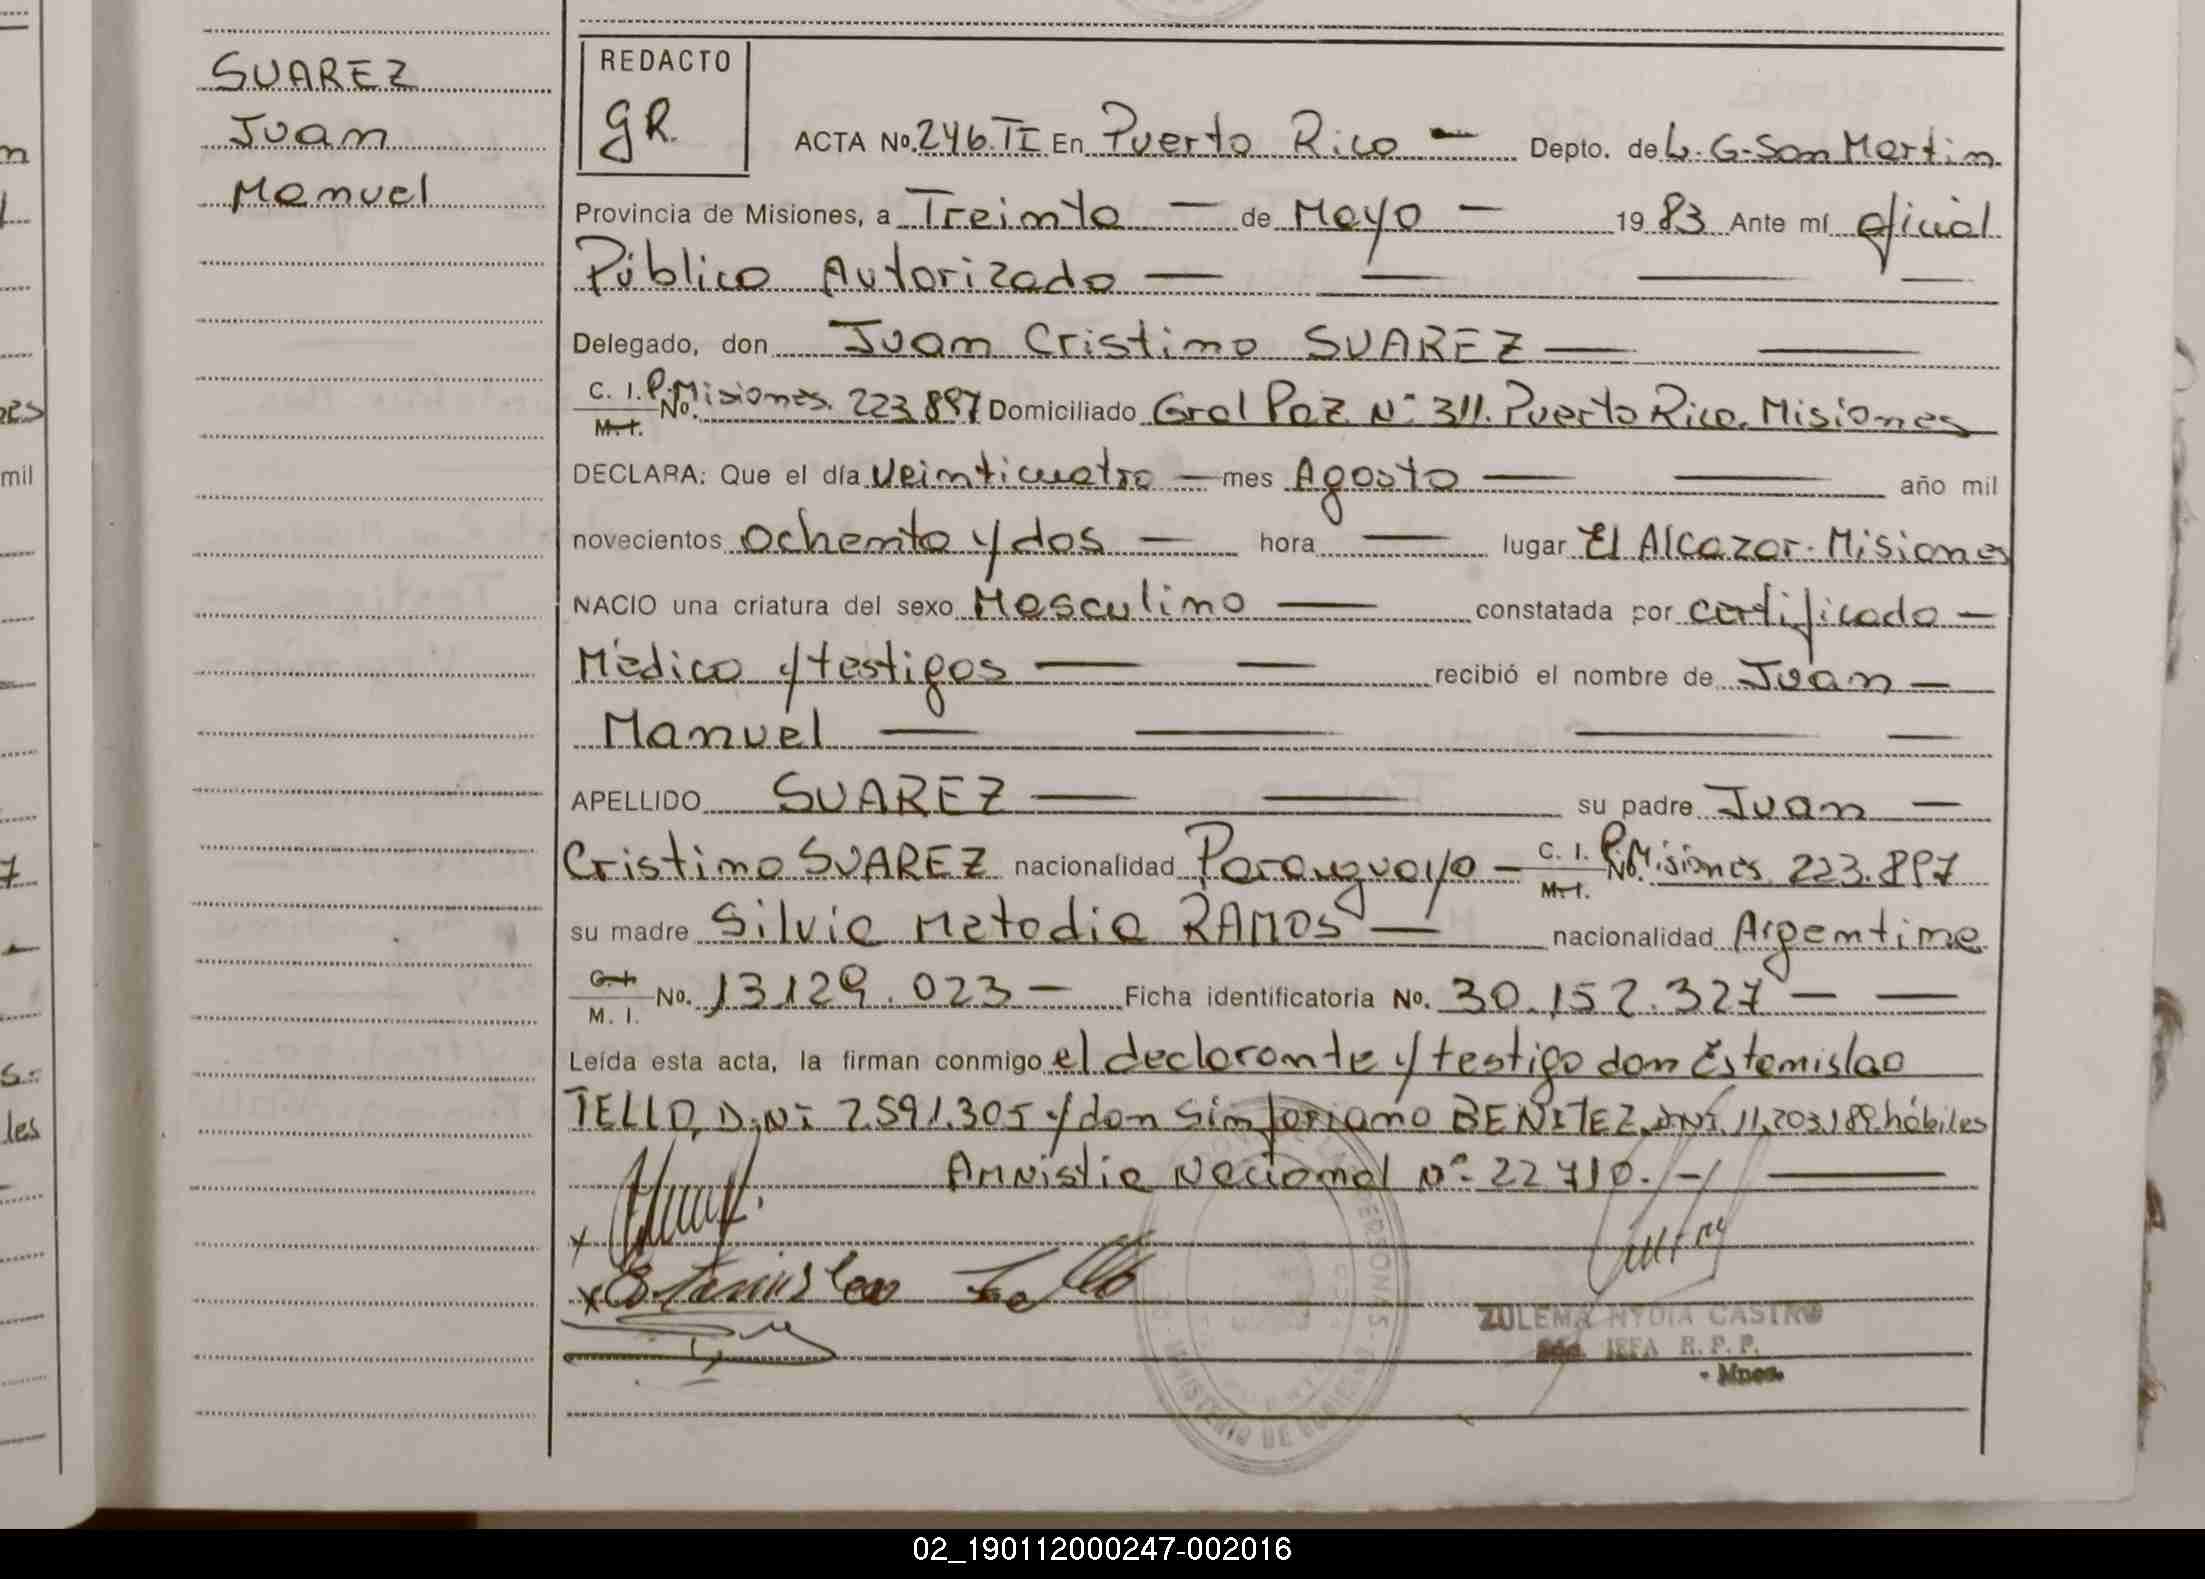 SUAREZ
Juan
Manuel
REDACTO
GR.
ACTA No. 246.TI En Puerto Rico — Depto. de L. G. San Martin
Provincia de Misiones, a Treinta — de Mayo — 1983 Ante mí oficial
Público Autorizado — — — —
Delegado, don Juan Cristino SUAREZ — —
C. I. P. Misiones
M. I. No. 223.897 Domiciliado Gral Paz Nº 311. Puerto Rico. Misiones
DECLARA: Que el día veinticuatro — mes Agosto — — año mil
novecientos ochenta y dos — hora — lugar El Alcazar. Misiones
NACIO una criatura del sexo Masculino — constatada por certificado —
Médico y testigos — — recibió el nombre de Juan —
Manuel — — — —
APELLIDO SUAREZ — — su padre Juan —
Cristino SUAREZ nacionalidad Paraguayo — C. I. M. I. No. P. Misiones 223.897
su madre Silvia Metodia RAMOS — nacionalidad Argentina
C. I. M. I. No. 13.129.023 — Ficha identificatoria No. 30.152.327 — —
Leída esta acta, la firman conmigo el declarante y testigo don Estanislao
TELLO, D.NI 7.591.305 y don Sinforiano BENITEZ, DNI. 11.203.189. hábiles
Amnistia Nacional Nº 22.710. — —
x
x Estanislao Tello
ZULEMA NYDIA CASTRO
JEFA R. P. P.
- Mnes.
MINISTERIO DE GOBIERNO
PERSONAS
mil
les
02_190112000247-002016